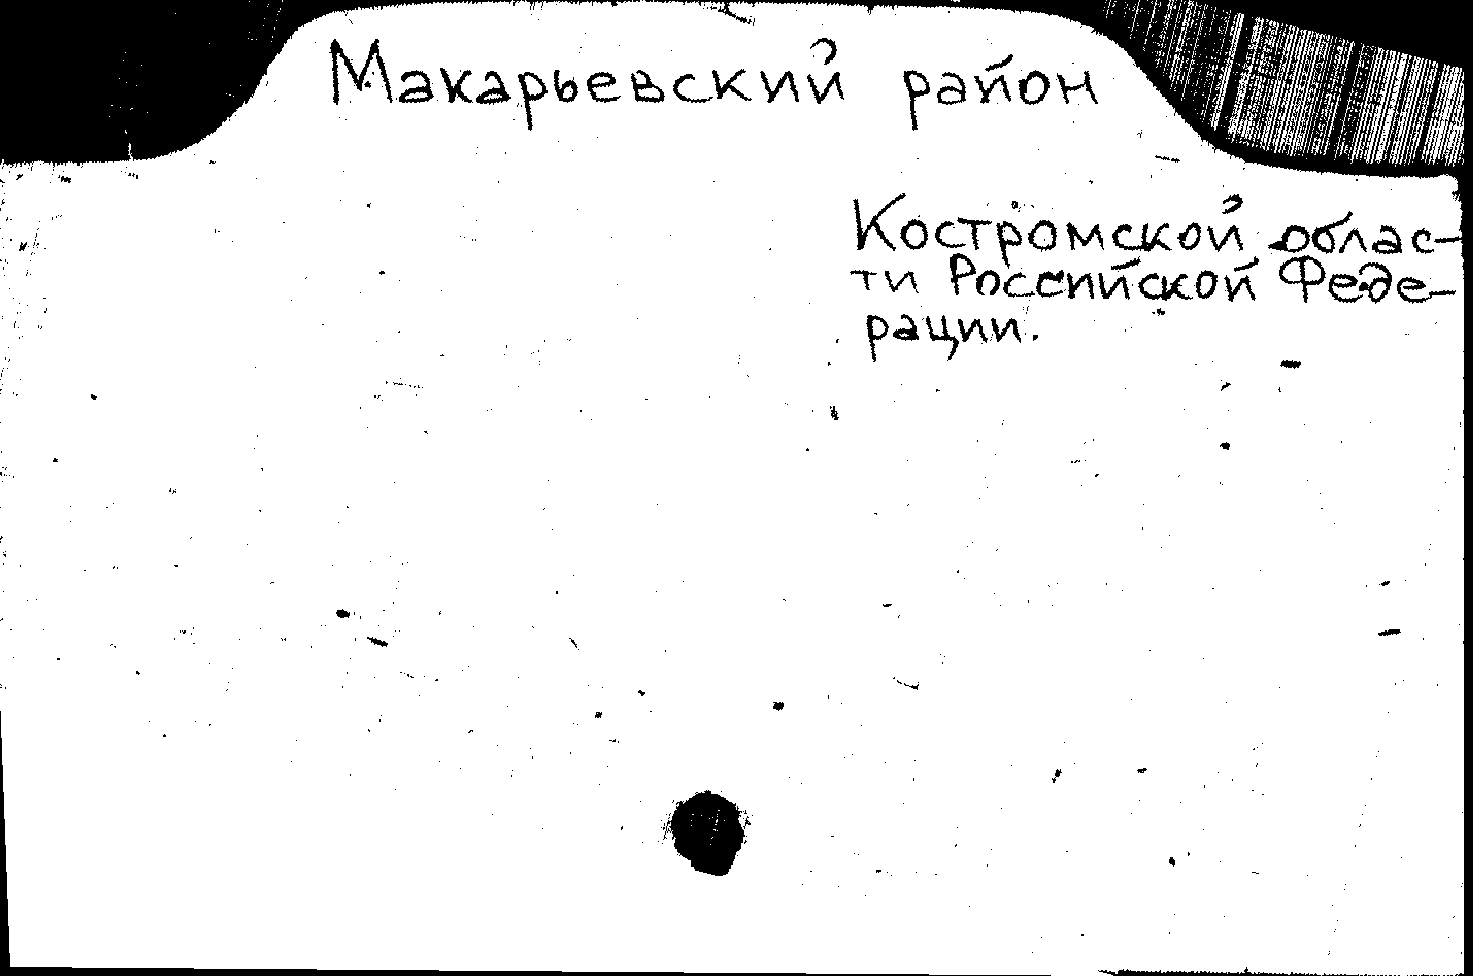 Макарьевский район
Костромской облас-
ти Российской Феде-
рации.